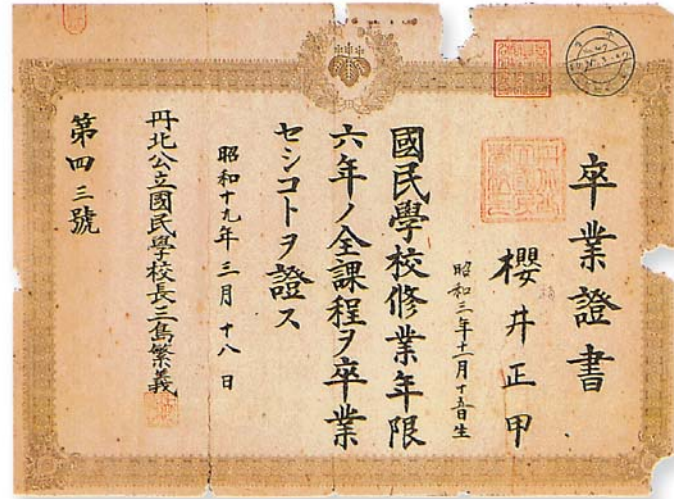 卒業證書
櫻井正甲
昭和三年十二月十五日生
國民學校修業年限
六年ノ全課程ヲ卒業
セシコトヲ證ス
昭和十九年三月十八日
丹北公立國民學校長三島繁義
第四三號